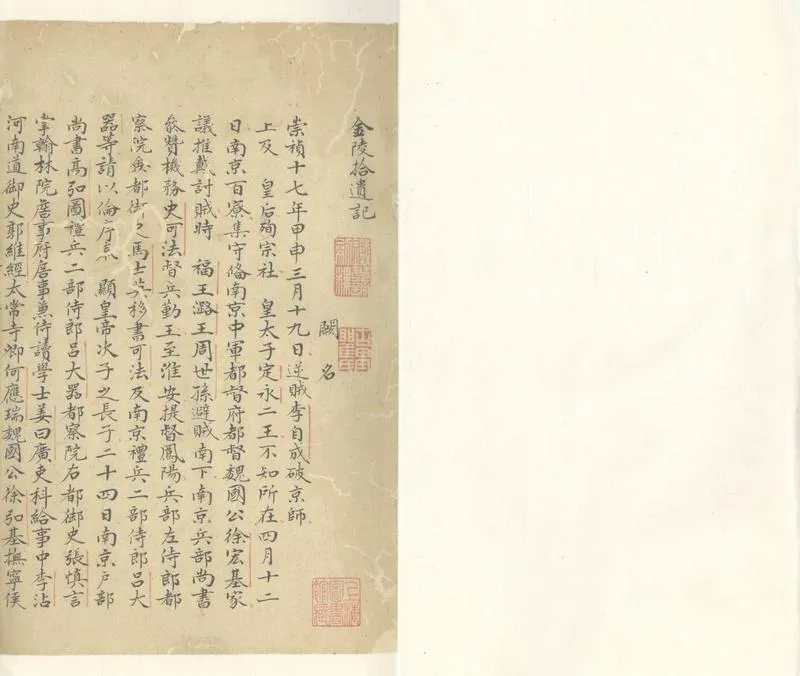 金陵拾遺記
闕名
崇禎十七年甲申三月十九日逆賊李自成破京師
上及　皇后殉宗社　皇太子定永二王不知所在四月十二
日南京百寮集守僃南京中軍都督府都督魏國公徐宏基家
議推戴討賊時　福王潞王周世孫避賊南下南京兵部尚書
叅贊機務史可法督兵勤王至淮安提督鳳陽兵部左侍郎都
察院僉都御史馬士英移書可法及南京禮兵二部侍郎呂大
器等請以倫序立　顯皇帝次子之長子二十四日南京戶部
尚書高弘圖禮兵二部侍郎呂大器都察院右都御史張慎言
掌翰林院詹事府詹事兼侍讀學士姜曰廣吏科給事中李沾
河南道御史郭維經太常寺卿何應瑞魏國公徐弘基撫寧侯